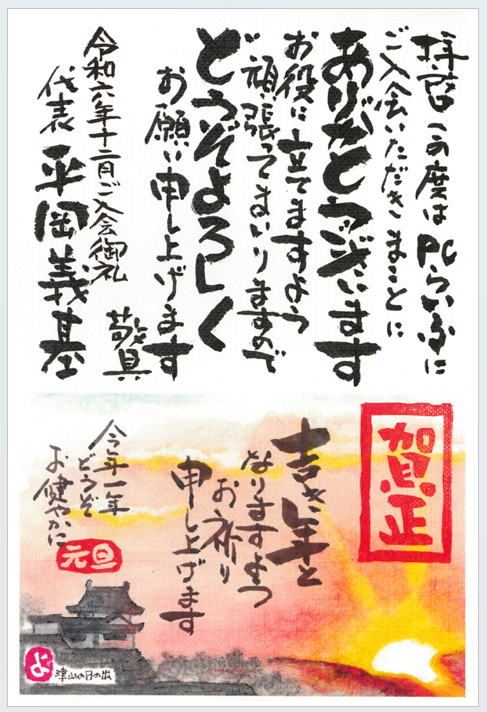 拝啓 この度は PCらいふに
ご入会いただきまことに
ありがとうございます
お役に立てますよう
頑張ってまいりますので
どうぞよろしく
お願い申し上げます
敬具
令和六年十二月ご入会御礼
代表 平岡義基
賀正
吉き年と
なりますよう
お祈り
申し上げます
今年一年
どうぞ
お健やかに
元旦
よ
津山の日の出